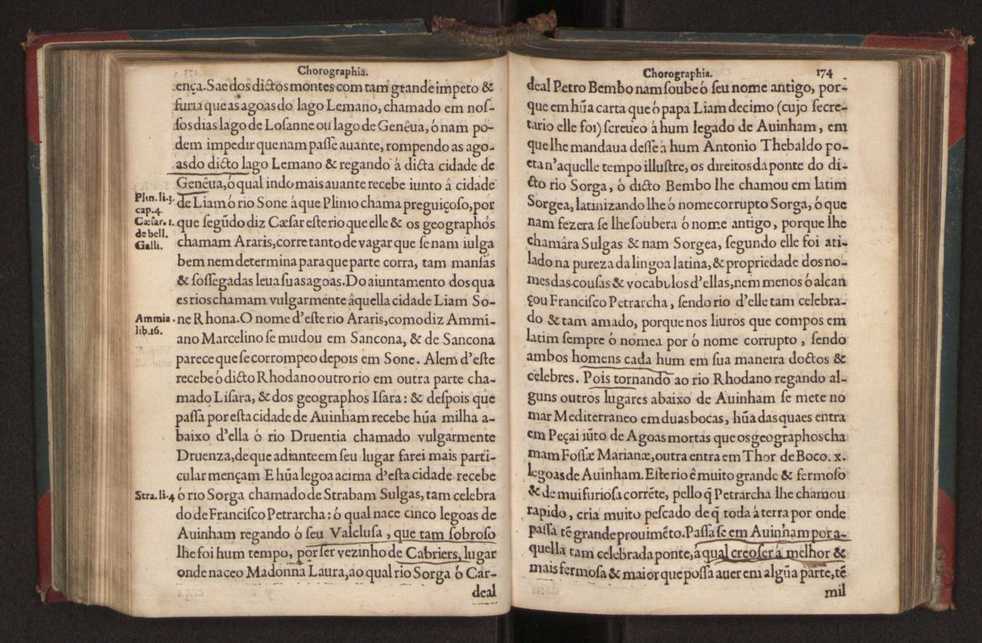 Chorographia.
ença. Sae dos dictos montes com tam grande impeto &
furia que as agoas do lago Lemano, chamado em nos-
sos dias lago de Losanne ou lago de Genêua, ó nam po-
dem impedir que nam passe auante, rompendo as ago-
as do dicto lago Lemano & regando á dicta cidade de
Genêua, ó qual indo mais auante recebe iunto á cidade
Plin. li. 3.
cap. 4.
de Liam ó rio Sone à que Plinio chama preguiçoso, por
Cæsar. 1.
de bell.
Galli.
que segũdo diz Cæsar este rio que elle & os geographos
chamam Araris, corre tanto de vagar que se nam iulga
bem nem determina para que parte corra, tam mansás
& sossegadas leua suas agoas. Do aiuntamento dos qua
es rios chamam vulgarmente àquella cidade Liam So-
Ammia.
lib. 16.
ne Rhona. O nome d'este rio Araris, como diz Ammi-
ano Marcelino se mudou em Sancona, & de Sancona
parece que se corrompeo depois em Sone. Alem d'este
recebe ó dicto Rhodano outro rio em outra parte cha-
mado Lisara, & dos geographos Isara: & despois que
passa por esta cidade de Auinham recebe hũa milha a-
baixo d'ella ó rio Druentia chamado vulgarmente
Druenza, de que adiante em seu lugar farei mais parti-
cular mençam E hũa legoa acima d'esta cidade recebe
Stra. li. 4
ó rio Sorga chamado de Strabam Sulgas, tam celebra
do de Francisco Petrarcha: ó qual nace cinco legoas de
Auinham regando ó seu Valclusa, que tam sobroso
lhe foi hum tempo, por ser vezinho de Cabriers, lugar
onde naceo Madonna Laura, ao qual rio Sorga ó Car-
deal
Chorographia. 174
deal Petro Bembo nam soube ó seu nome antigo, por-
que em hũa carta que ó papa Liam decimo (cujo secre-
tario elle foi) screueo à hum legado de Auinham, em
que lhe mandaua desse à hum Antonio Thebaldo po-
eta n'aquelle tempo illustre, os direitos da ponte do di-
cto rio Sorga, ó dicto Bembo lhe chamou em latim
Sorgea, latinizando lhe ó nome corrupto Sorga, ó que
nam fezera se lhe soubera ó nome antigo, porque lhe
chamára Sulgas & nam Sorgea, segundo elle foi ati-
lado na pureza da lingoa latina, & propriedade dos no-
mes das cousas & vocabulos d'ellas, nem menos ó alcan
çou Francisco Petrarcha, sendo rio d'elle tam celebra-
do & tam amado, porque nos liuros que compos em
latim sempre ó nomea por ó nome corrupto, sendo
ambos homens cada hum em sua maneira doctos &
celebres. Pois tornando ao rio Rhodano regando al-
guns outros lugares abaixo de Auinham se mete no
mar Mediterraneo em duas bocas, hũa das quaes entra
em Peçai iũto de Agoas mortas que os geographos cha
mam Fossæ Marianæ, outra entra em Thor de Boco. x.
legoas de Auinham. Este rio é muito grande & fermoso
& de mui furiosa corrẽte, pello q̃ Petrarcha lhe chamou
rapido, cria muito pescado de q̃ toda à terra por onde
passa tẽ grande prouimẽto. Passa se em Auinham por a-
quella tam celebrada ponte, à qual creo ser á melhor &
mais fermosa & maior que possa auer em algũa parte, tẽ
mil